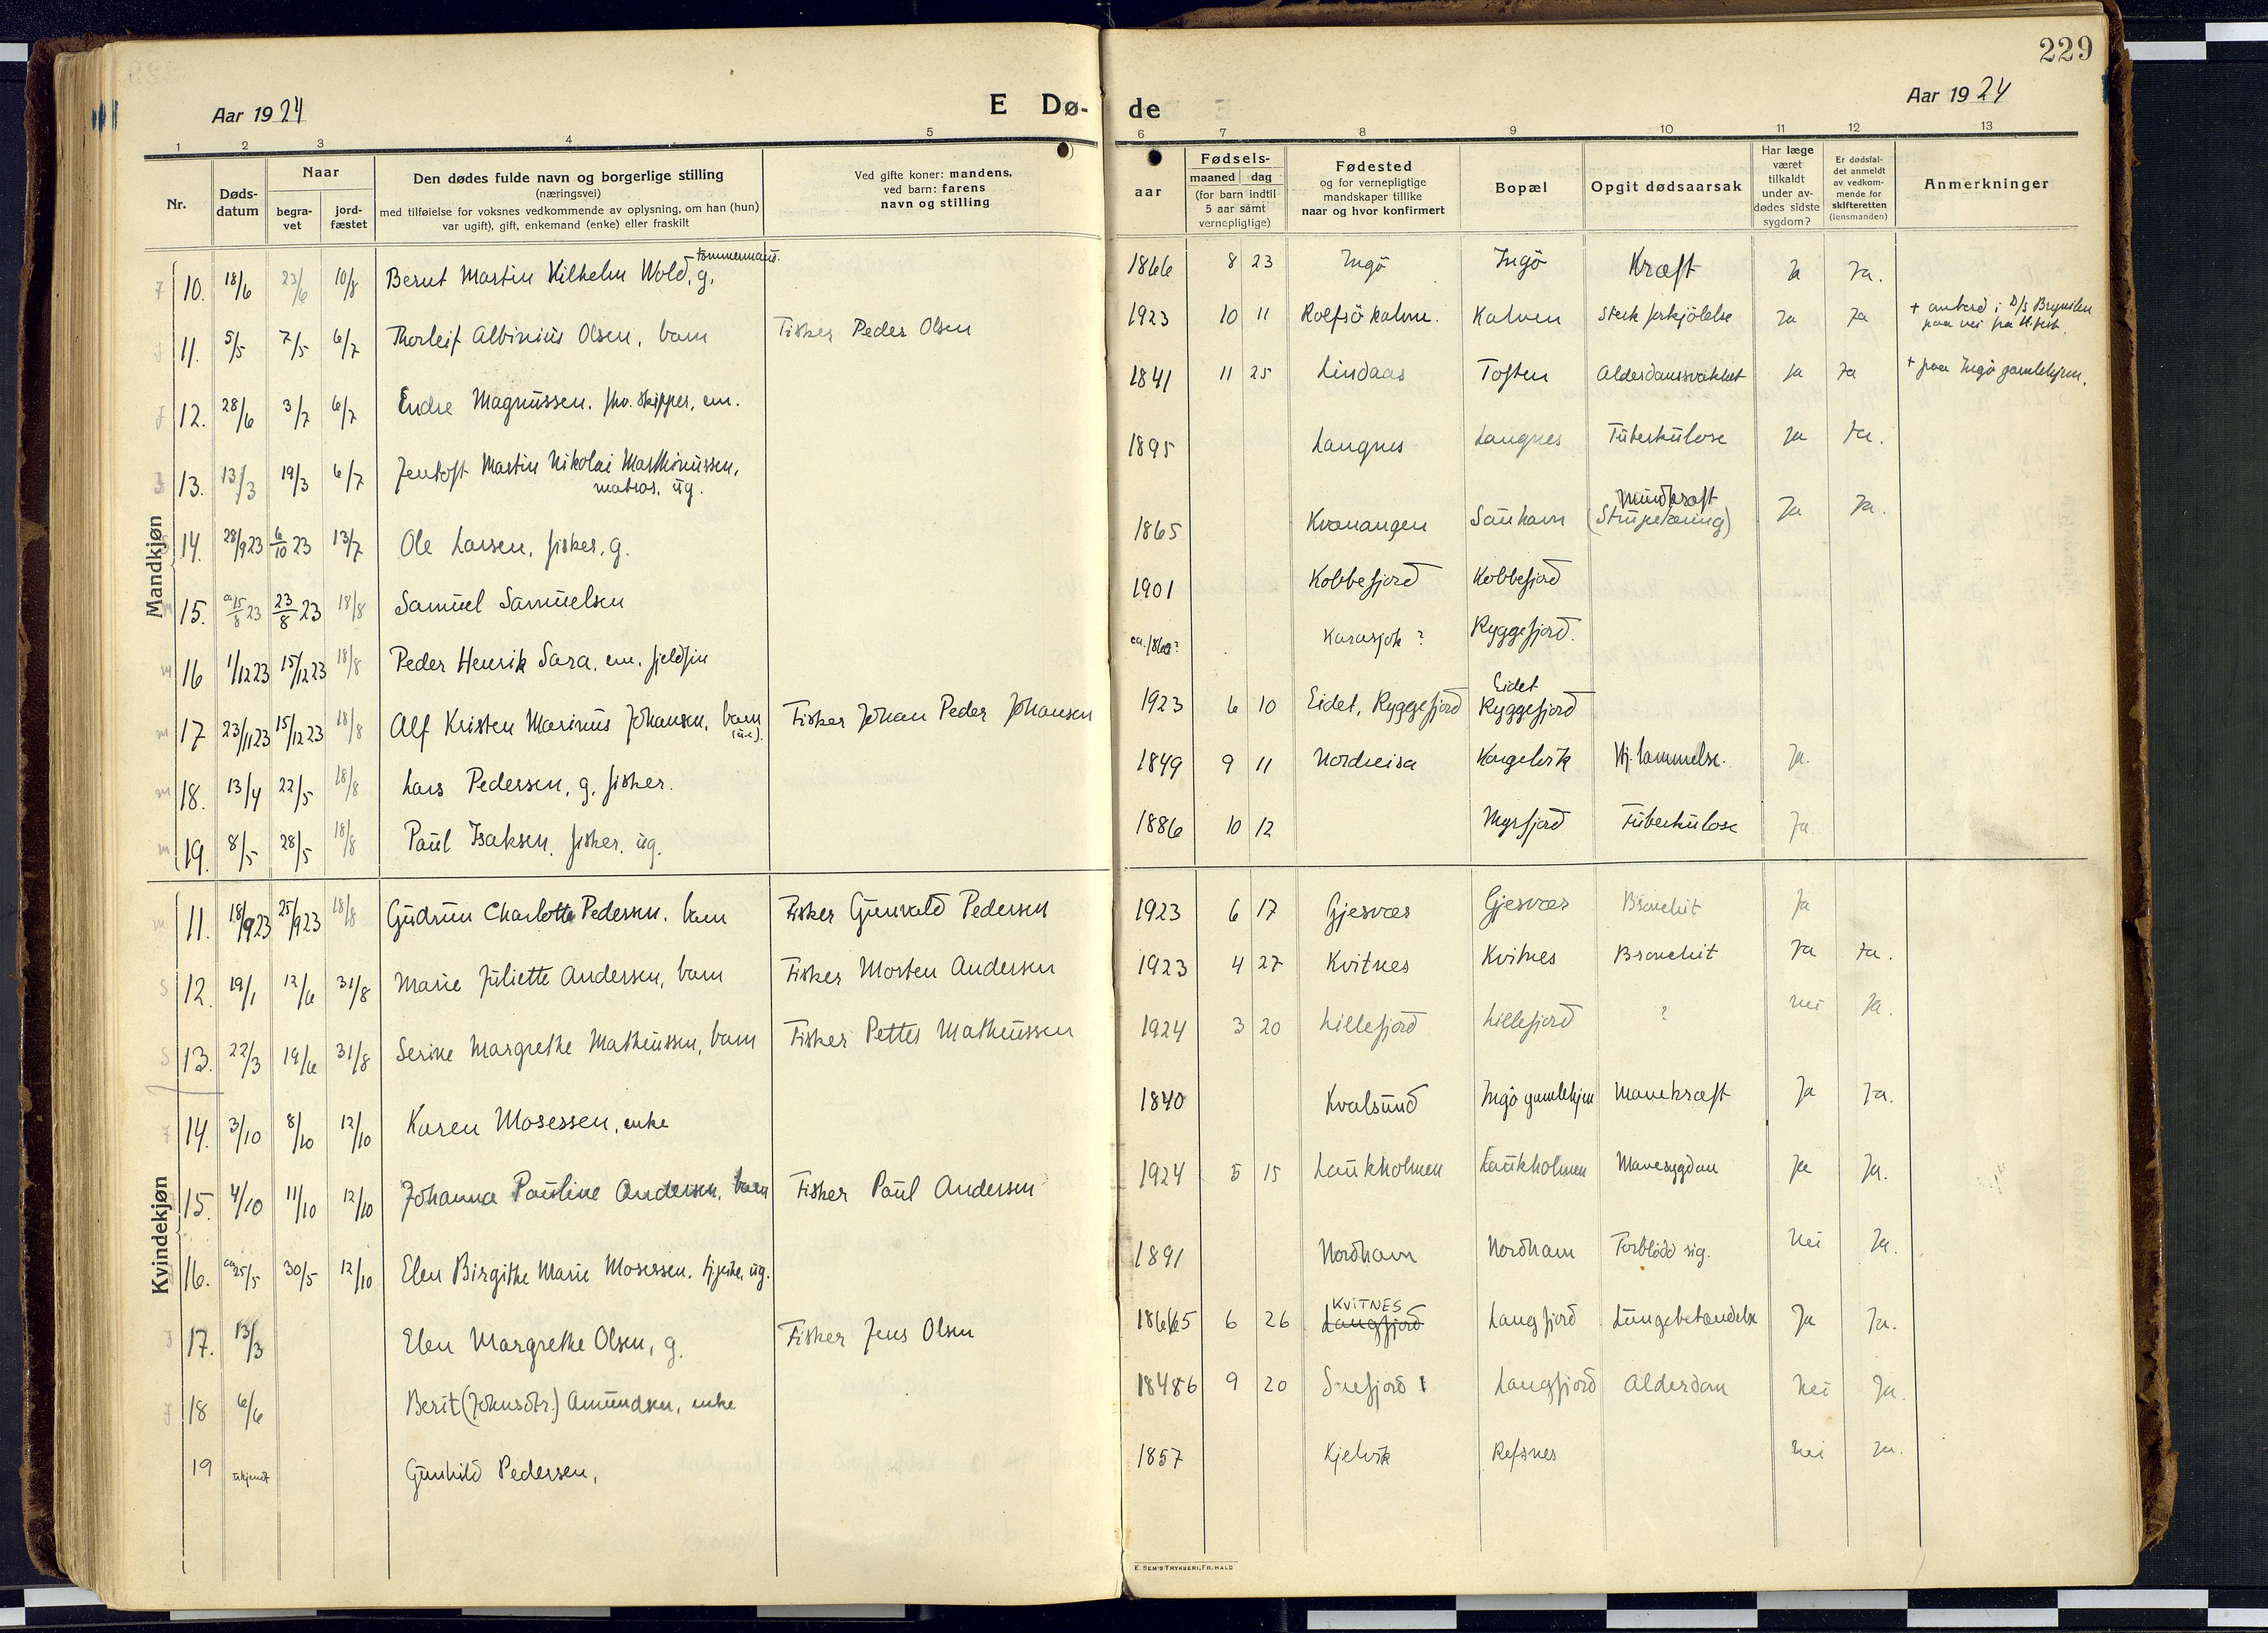 229
Aar 1924
E Dø-
de
Aar 1924
1 2 3 4 5 6 7 8 9 10 11 12 13
Nr.
Døds-
datum
Naar
begra-
vet
jord-
fæstet
Den dødes fulde navn og borgerlige stilling
(næringsvei)
med tilføielse for voksnes vedkommende av oplysning, om han (hun)
var ugift), gift, enkemand (enke) eller fraskilt
Ved gifte koner: mandens,
ved barn: farens
navn og stilling
aar
Fødsels-
maaned dag
(for barn indtil
5 aar samt
vernepligtige)
Fødested
og for vernepligtige
mandskaper tillike
naar og hvor konfirmert
Bopæl
Opgit dødsaarsak
Har læge
været
tilkaldt
under av-
dødes sidste
sygdom?
Er dødsfal-
det anmeldt
av vedkom-
mende for
skifteretten
(lensmanden)
Anmerkninger
Mandkjøn
tømmermand.
10. 18/6 23/6 10/8 Bernt Martin Vilhelm Wold, g, 1866 8 23 Ingö Ingö Kræft Ja Ja.
11. 5/5 7/5 6/7 Thorleif Albinius Olsen, barn Fisker Peder Olsen 1923 10 11 Rolfsö kalven. Kalven Sterk forkjölelse Ja Ja + ombord i D/S Brynilen
paa vei fra H.fest.
12. 28/6 3/7 6/7 Endre Magnussen. fhv. skipper, em. 1841 11 25 Lindaas Toften Alderdomssvakhet Ja Ja + paa Ingö gamlehjem.
13. 13/3 19/3 6/7 Jentoft Martin Nikolai Marthinussen,
matros, ug. 1895 Langnes Langnes Tuberkulose Ja Ja.
14. 28/9 23 6/10 23 13/7 Ole Larsen, fisker, g. 1865 Kvænangen Sauhavn Mundkræft
(Strupetæring) Ja Ja.
15. ca 15/8 23 23/8 23 18/8 Samuel Samuelsen 1901 Kobbefjord Kobbefjord
16 1/12 23 15/12 23 18/8 Peder Henrik Sara. em. fjeldfin ca. 1860? Karasjok? Ryggefjord.
17 23/11 23 15/12 23 18/8 Alf Kristen Marinus Johansen, barn
(u.e). Fisker Johan Peder Johansen 1923 6 10 Eidet, Ryggefjord Eidet
Ryggefjord
18. 13/4 22/5 18/8 Lars Pedersen, g. fisker. 1849 9 11 Nordreisa Kongelvik Hj. lammelse. Ja.
19. 8/5 28/5 18/8 Paul Isaksen, fisker. ug. 1886 10 12 Myrfjord Tuberkulose Ja.
Kvindekjøn
11. 18/9 23 25/9 23 18/8 Gudrun Charlotte Pedersen. barn Fisker Gunvald Pedersen 1923 6 17 Gjesvær Gjesvær Bronchit Ja
12. 19/1 12/6 31/8 Marie Juliette Andersen, barn Fisker Morten Andersen 1923 4 27 Kvitnes Kvitnes Bronchit Ja Ja.
13. 22/3 19/6 31/8 Serine Margrethe Matheussen, barn Fisker Petter Matheussen 1924 3 20 Lillefjord Lillefjord ? Nei Ja.
14. 3/10 8/10 12/10 Karen Mosessen, enke 1840 Kvalsund Ingö gamlehjem Mavekræft Ja Ja.
15. 4/10 11/10 12/10 Johanna Pauline Andersen, barn Fisker Paul Andersen 1924 5 15 Laukholmen Laukholmen Mavesygdom Ja Ja.
16. ca 25/5 30/5 12/10 Elen Birgithe Marie Mosessen. tjeneste, ug. 1891 Nordhavn Nordhavn Forblödd sig. Nei Ja.
17. 13/3 Elen Margrethe Olsen, g. Fisker Jens Olsen 18665 6 26 KVITNES
Langfjord Langfjord Lungebetændelse Ja Ja.
18 6/6 Berit (Johnsdtr.) Amundsen, enke 18486 9 20 Snefjord Langfjord Alderdom Nei Ja.
19 ukjendt Gunhild Pedersen, 1857 Kjelvik Refsnes Nei Ja.
E. SEM'S TRYKKERI, FR. HALD